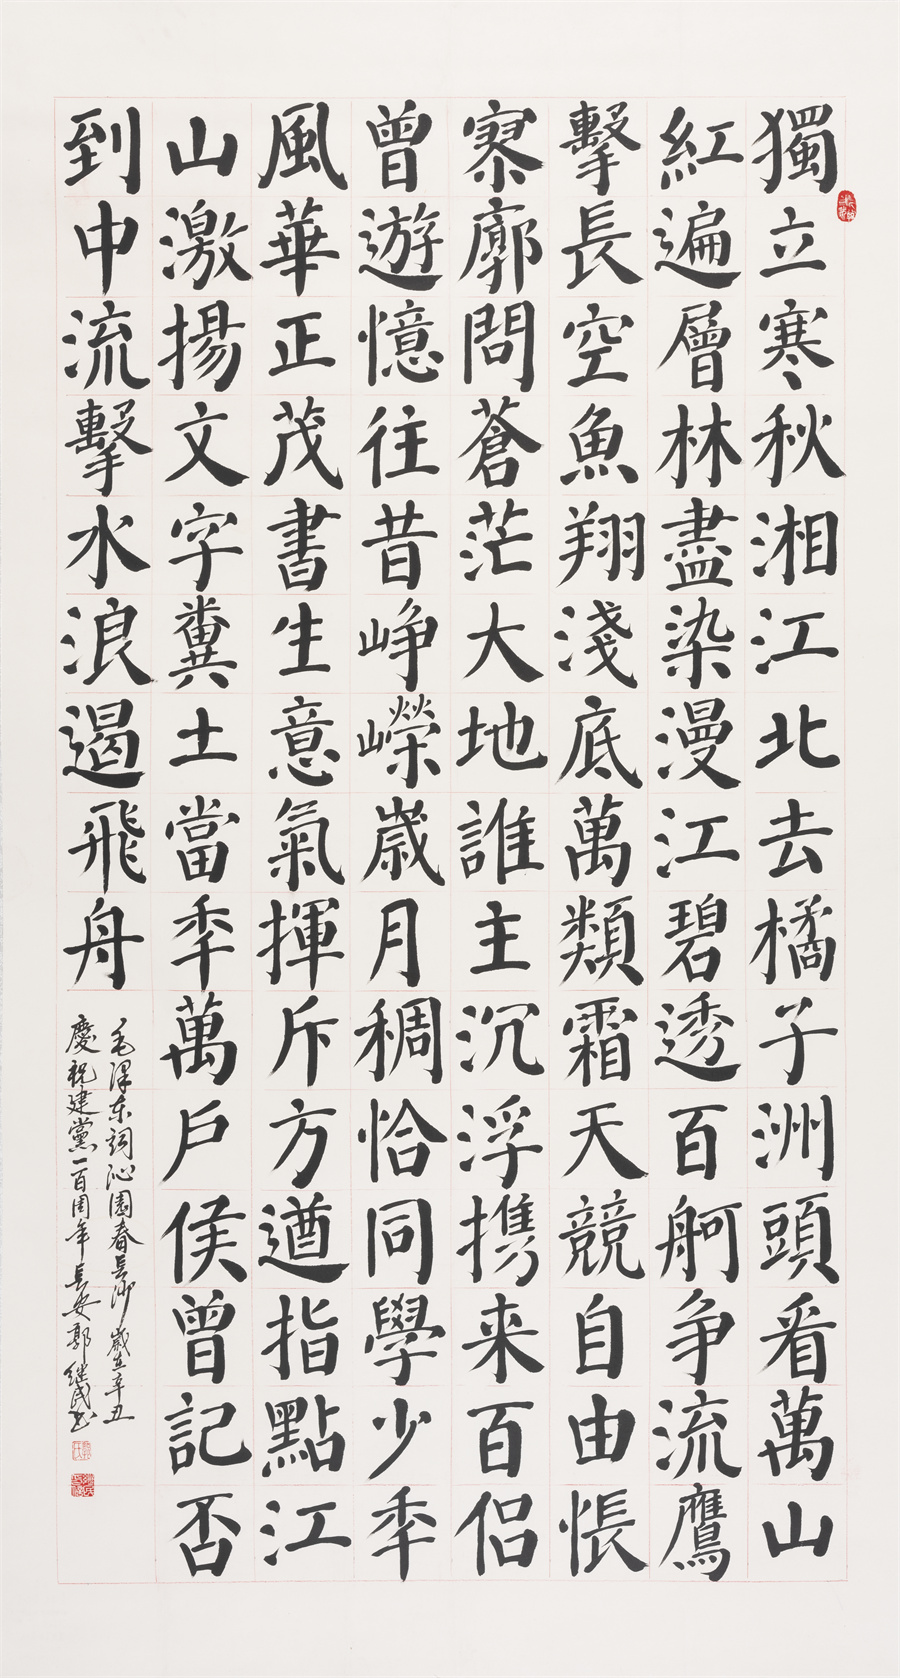 獨立寒秋湘江北去橘子洲頭看萬山
紅遍層林盡染漫江碧透百舸争流鷹
擊長空魚翔淺底萬類霜天競自由悵
寥廓問蒼茫大地誰主沉浮携来百侣
曾遊憶往昔崢嶸歲月稠恰同學少年
風華正茂書生意氣揮斥方遒指點江
山激揚文字糞土當年萬戶侯曾記否
到中流擊水浪遏飛舟
毛澤东詞沁園春長沙歲在辛丑
慶祝建黨一百周年長安郭继民书